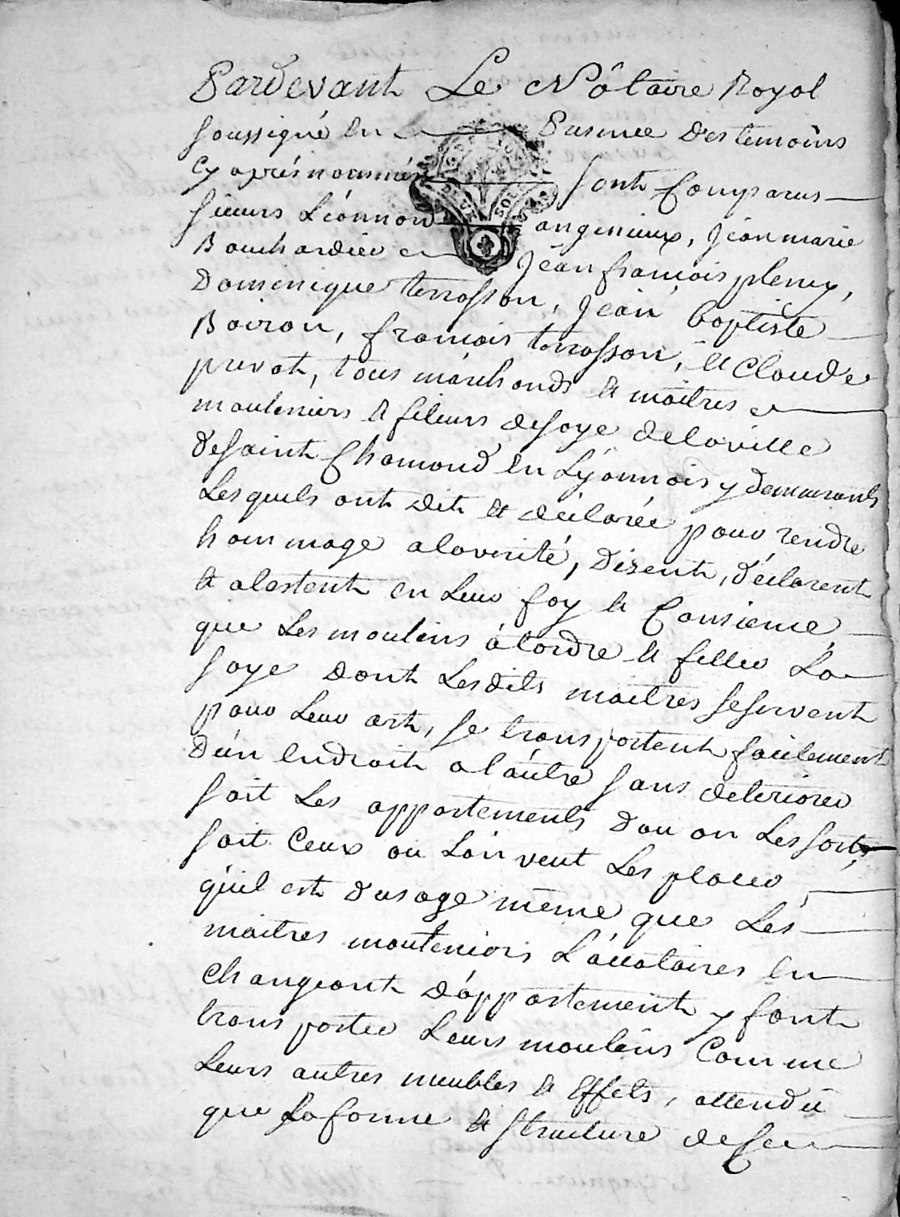 Pardevant Le Nôtaire Royal
soussigné en presence des temoins
cy aprés nommés sont Comparus
sieurs Léonnord angenieux, Jean marie
Bouchardier Jean francois pleney,
Domenique terrasson, Jean baptiste
Boiron, francois terrasson, et Claude
prevot, tous marchands et maîtres
mouleniers et fileurs desoye delaville
desaint Chamond en Lyonnois y demeurants
Lesquels ont dit et déclarée pour rendre
hommage alaverité, disent, déclarent
et atestent en Leur foy et Consience
que Les moulins à tordre et filler La
soye dont Lesdits maitres seservent
pour Leur art, se transportent facilement
d'un Endroit a l'autre sans deteriorer
soit Les appartements dou on Les sort,
soit Ceux ou Lon veut Les placer,
qu'il est d'usage même que Les
maitres mouleniers Locataires en
changeant d'appartement y font
transporter Leurs moulins Comme
Leurs autres meubles et Effets, attendu
que La forme et structure de Ce